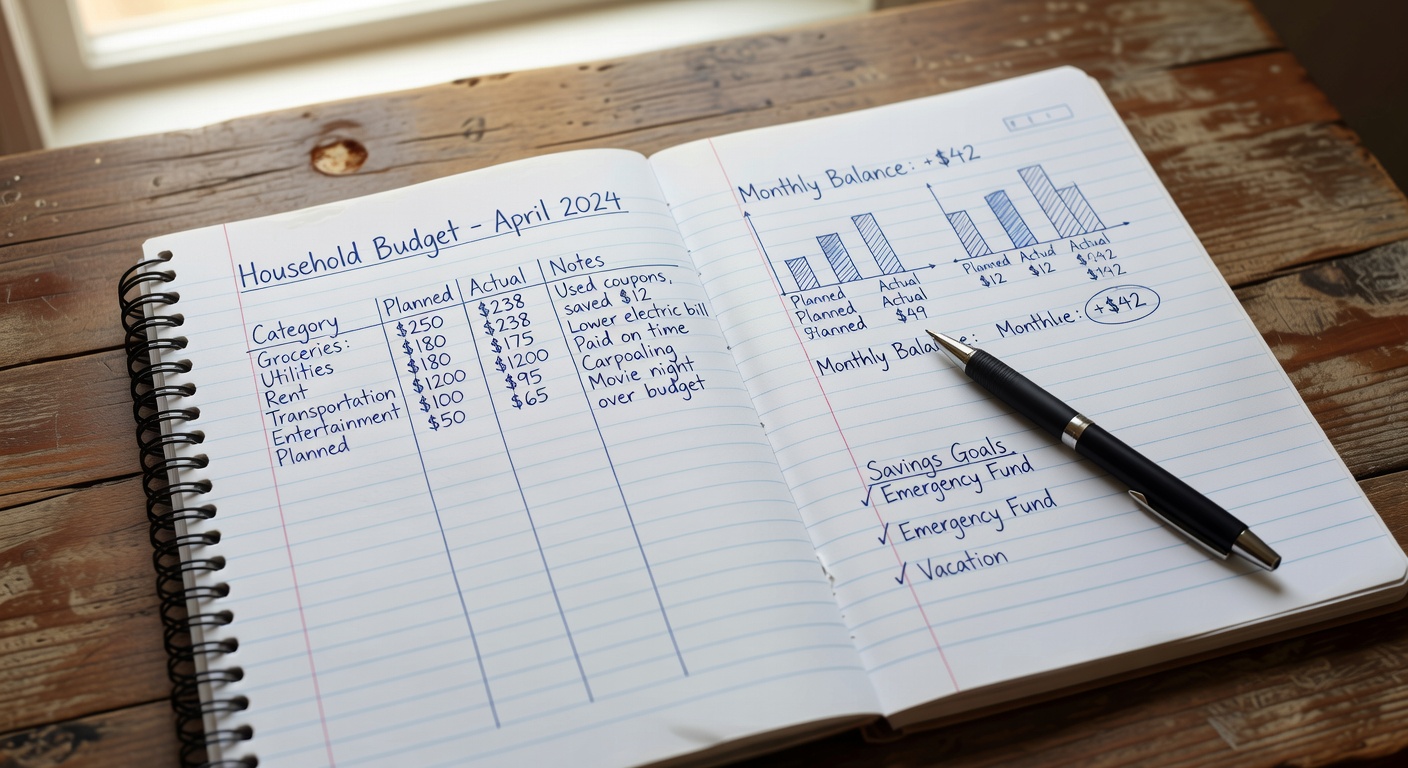 Household Budget - April 2024
Category Planned Actual Notes
Groceries: $250 $238 Used coupons,
Utilities $180 $238 saved $12
Rent $180 $175 Lower electric bill
Transportation $1200 $1200 Paid on time
Entertainment $100 $95 Carpoaling
Planned $50 $65 Movie night
over budget
Monthly Balance: +$42
Planned Actual
Planned Actual
$49
Planned Actual Actual
$12 $12
Monthly Balance: Monthlıe: +$42
Savings Goals
✓ Emergency Fund
✓ Emergency Fund
✓ Vacation